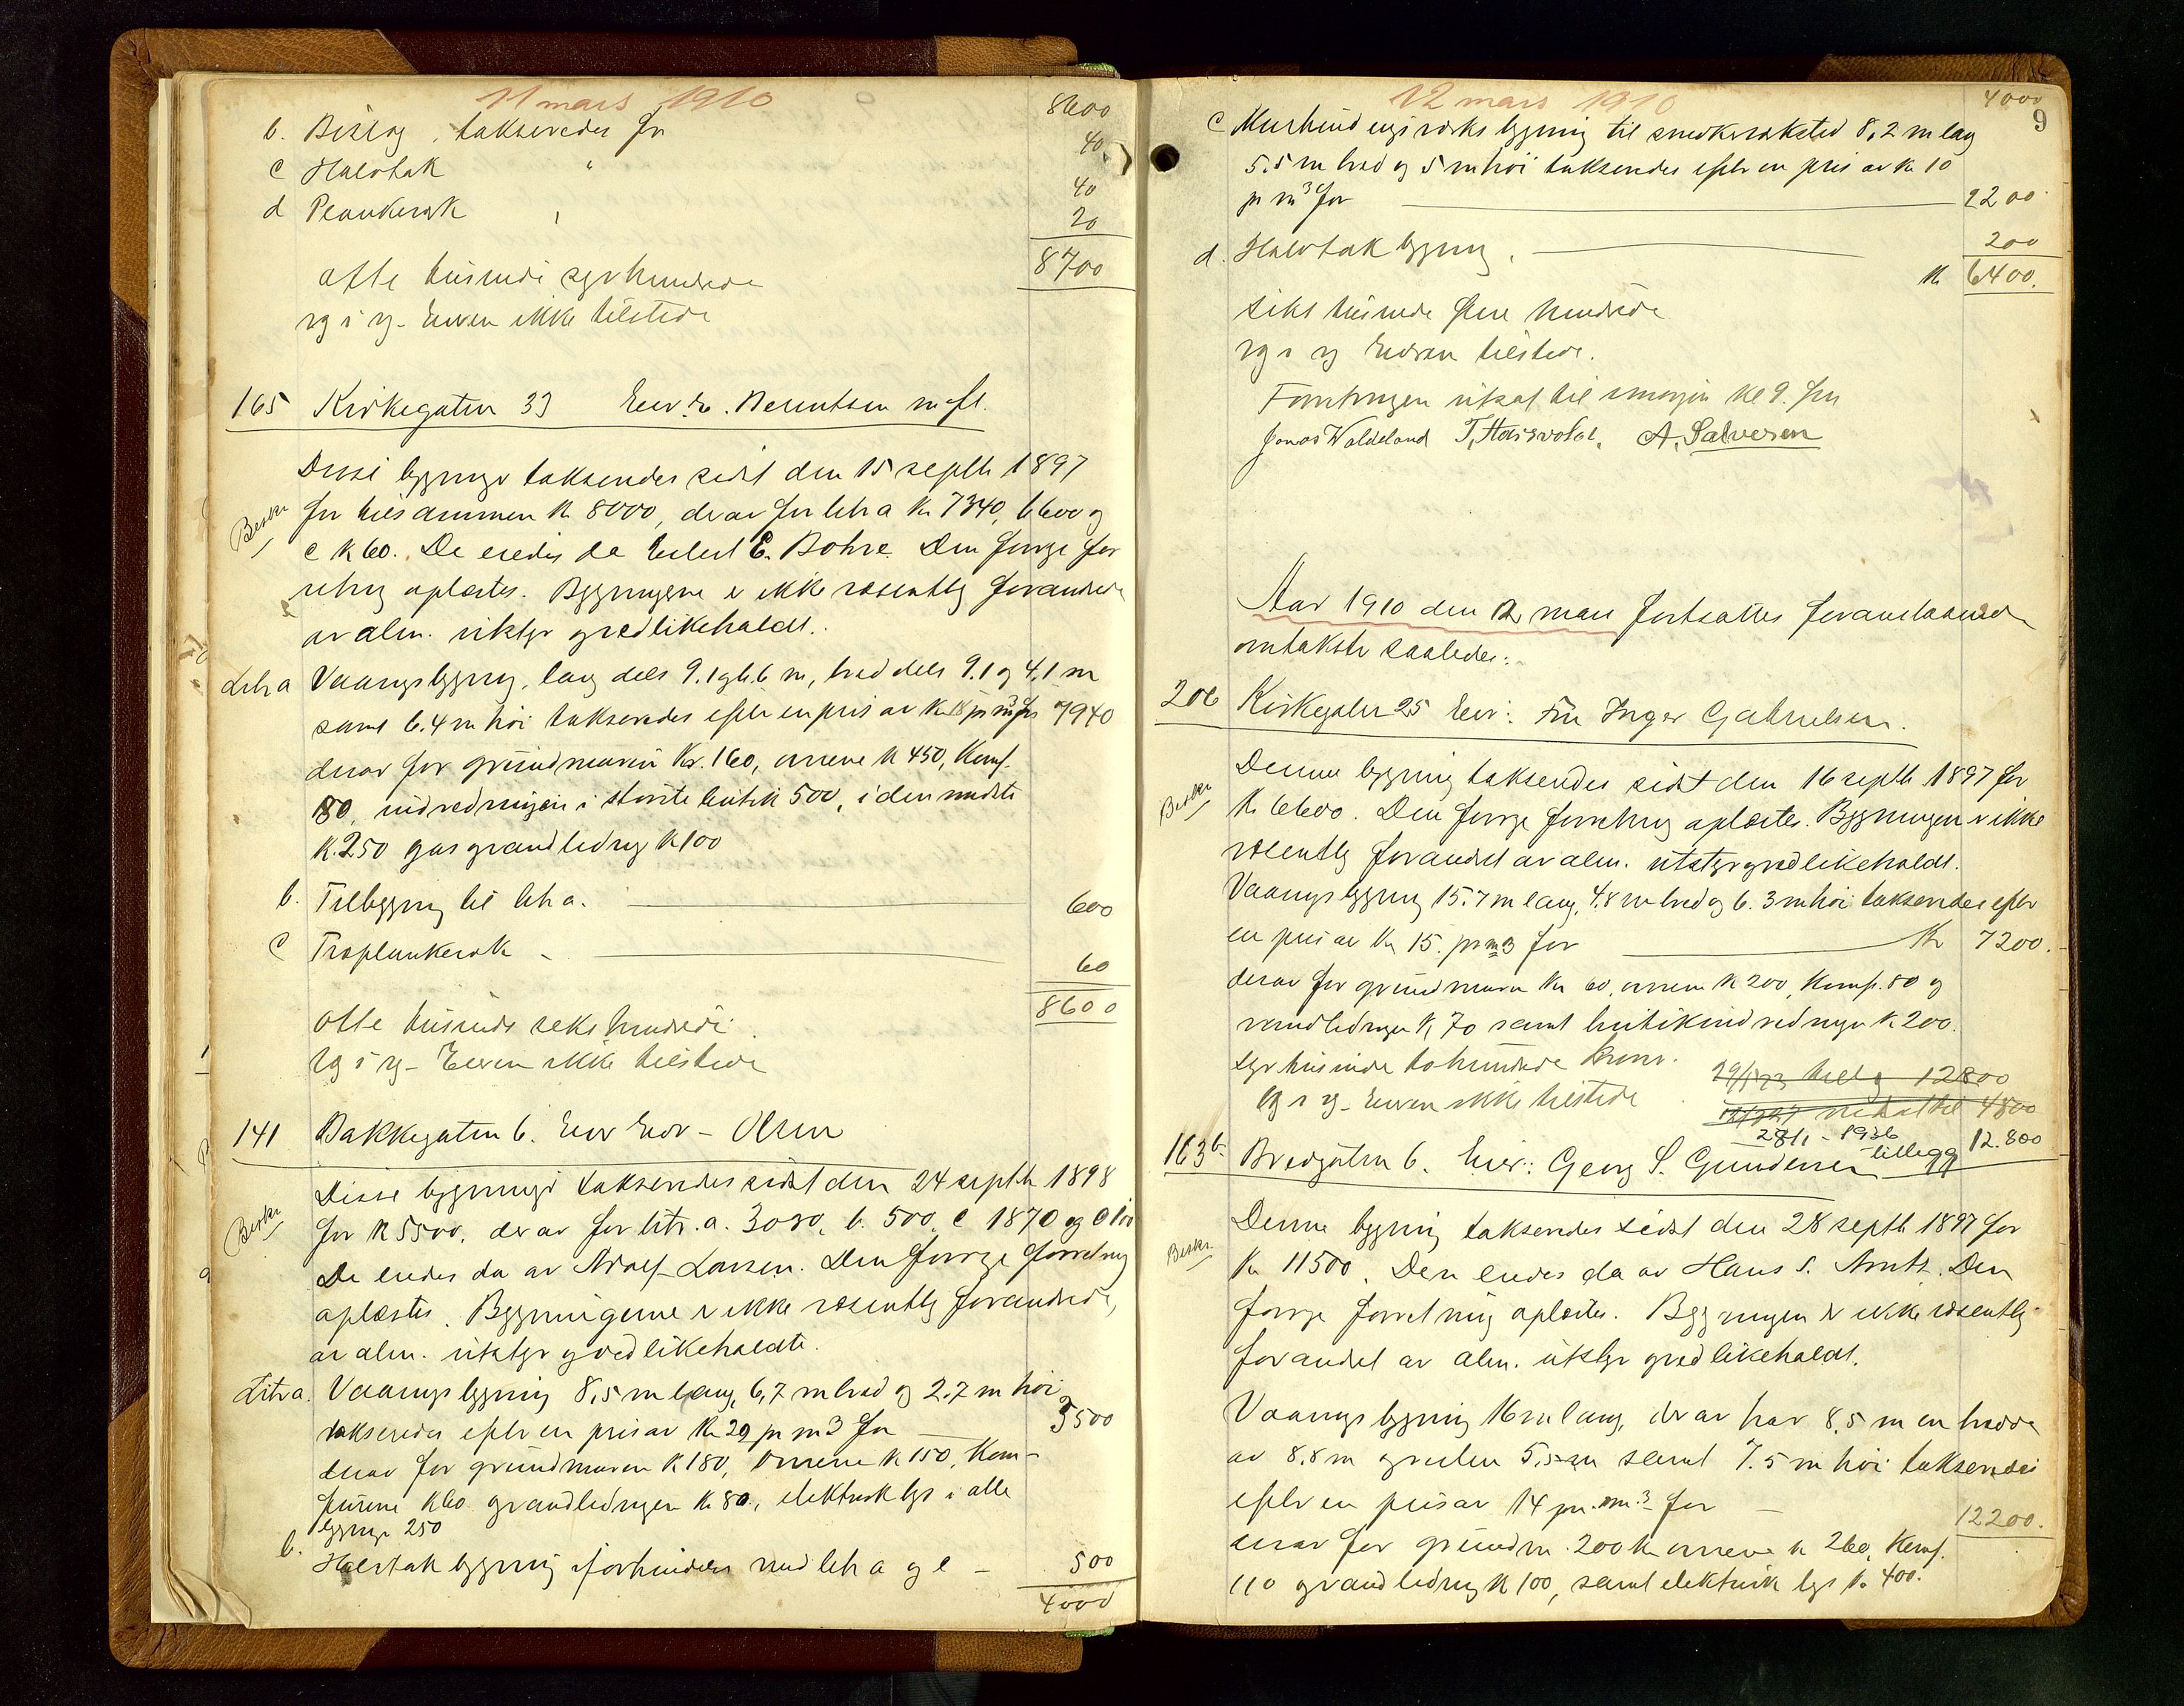 11 mars 1910
8600
b. Bislag, taksendes for 40
c Halvtak " 40
d Plankerøk " 20
8700
otte tusinde syv hundrede
og i ry - Eieren ikke tilstede
165 Kirkegaten 33 Eier: E. Berentsen m fl.
Disse bygninger taksertes sidst den 15 septbr 1897
Beskr
for tilsammen kr 8000, derav for litr a kr 7340, b 600 og
c kr 60. De eiedes da Eilert E. Bohre. Den forrige for
retning oplæstes. Bygningene er ikke væsentlig forandrede
av alm. utstyr og vedlikeholdt.
Litr a Vaaningsbygning, lang dels 9.1 og 6.6 m, bred dels 9.1 og 4,1 m
samt 6.4 m høi takseredes efter en pris av kr 18 pr m3 for 7940
derav for grundmuren Kr. 160, ovnene kr 450, Komf.
180, indredningen i største butik 500, i den mindste
kr. 250 gas og vandledning kr 100
b. Tilbygning til litr a. 600
c Træplankerøk 60
8600
otte tusinde seks hundrede
og i ry - Eieren ikke tilstede
141 Bakkegaten 6. Eier Edv - Olsen
Disse bygninger taksertes sidst den 24 septbr 1898
Beskr
for kr 5500, derav for litr. a. 3030, b. 500, c 1870 og d 100
De eiedes da av Adolf Larsen. Den forrige forretning
oplæstes. Bygningerne er ikke væsentlig forandrede,
av alm. utstyr og vedlikeholdte.
Litr a. Vaaningsbygning 8,5 m lang, 6,7 m bred og 2.7 m høi
takseredes efter en pris av kr 29 pr m3 for 3500
derav for grundmuren kr 180, ovnene kr 150, Kom-
furene kr 60 og vandledningen kr 80., elektrisk lys i alle
bygninger 250
b. Halvtakbygning i forbindelse med litr a og c - 500
4000
12 mars 1910
4000
9
c Murbindingsverksbygning til snedkerverksted 8,2 m lang
5.5 m bred og 5 m høi takseredes efter en pris av kr 10
pr m3 for 2200
d. Halvtakbygning. 200
kr 6400.
seks tusinde fire hundrede
og i ry Eieren tilstede.
Forretningen utsat til imorgen kl 9. fm
Jonas Waldeland T. Haisvold. A. Salvesen
Aar 1910 den 12 mars fortsattes foranstaaende
omtakster saaledes:
206 Kirkegaten 25 Eier: Fru Inger Gabrielsen.
Denne bygning takseredes sidst den 16 septbr 1897 for
Beskr
kr 6600. Den forrige forretning oplæstes. Bygningen er ikke
væsentlig forandret av alm. utstyr og vedlikeholdt.
Vaaningsbygning 15.7 m lang, 4,8 m bred og 6.3 m høi takseredes efter
en pris av kr 15. pr m3 for kr 7200.
derav for grundmuren kr 60, ovnene kr 200, Komf. 80 og
vandledningen kr 70 samt butikindredningen kr 200.
syv tusinde to hundrede kroner.
og i ry - Eieren ikke tilstede
12800
4800
28/1 - 1936
tillegg 12.800
163b Bredgaten 6. Eier: Georg S. Gundersen
Denne bygning takseredes sidst den 28 septbr 1897 for
Beskr.
kr 11500. Den eiedes da av Hans S. Arntz. Den
forrige forretning oplæstes. Bygningen er ikke væsentlig
forandret av alm. utstyr og vedlikeholdt.
Vaaningsbygning 16 m lang, derav har 8,5 m en bredde
av 8.8 m og resten 5,5 m samt 7.5 m høi takseredes
efter en pris av 14 pr. m.3 for - 12200.
derav for grundm. 200 kr ovnene kr 260, Komf.
110 og vandledning kr 100, samt elektrisk lys kr. 400.